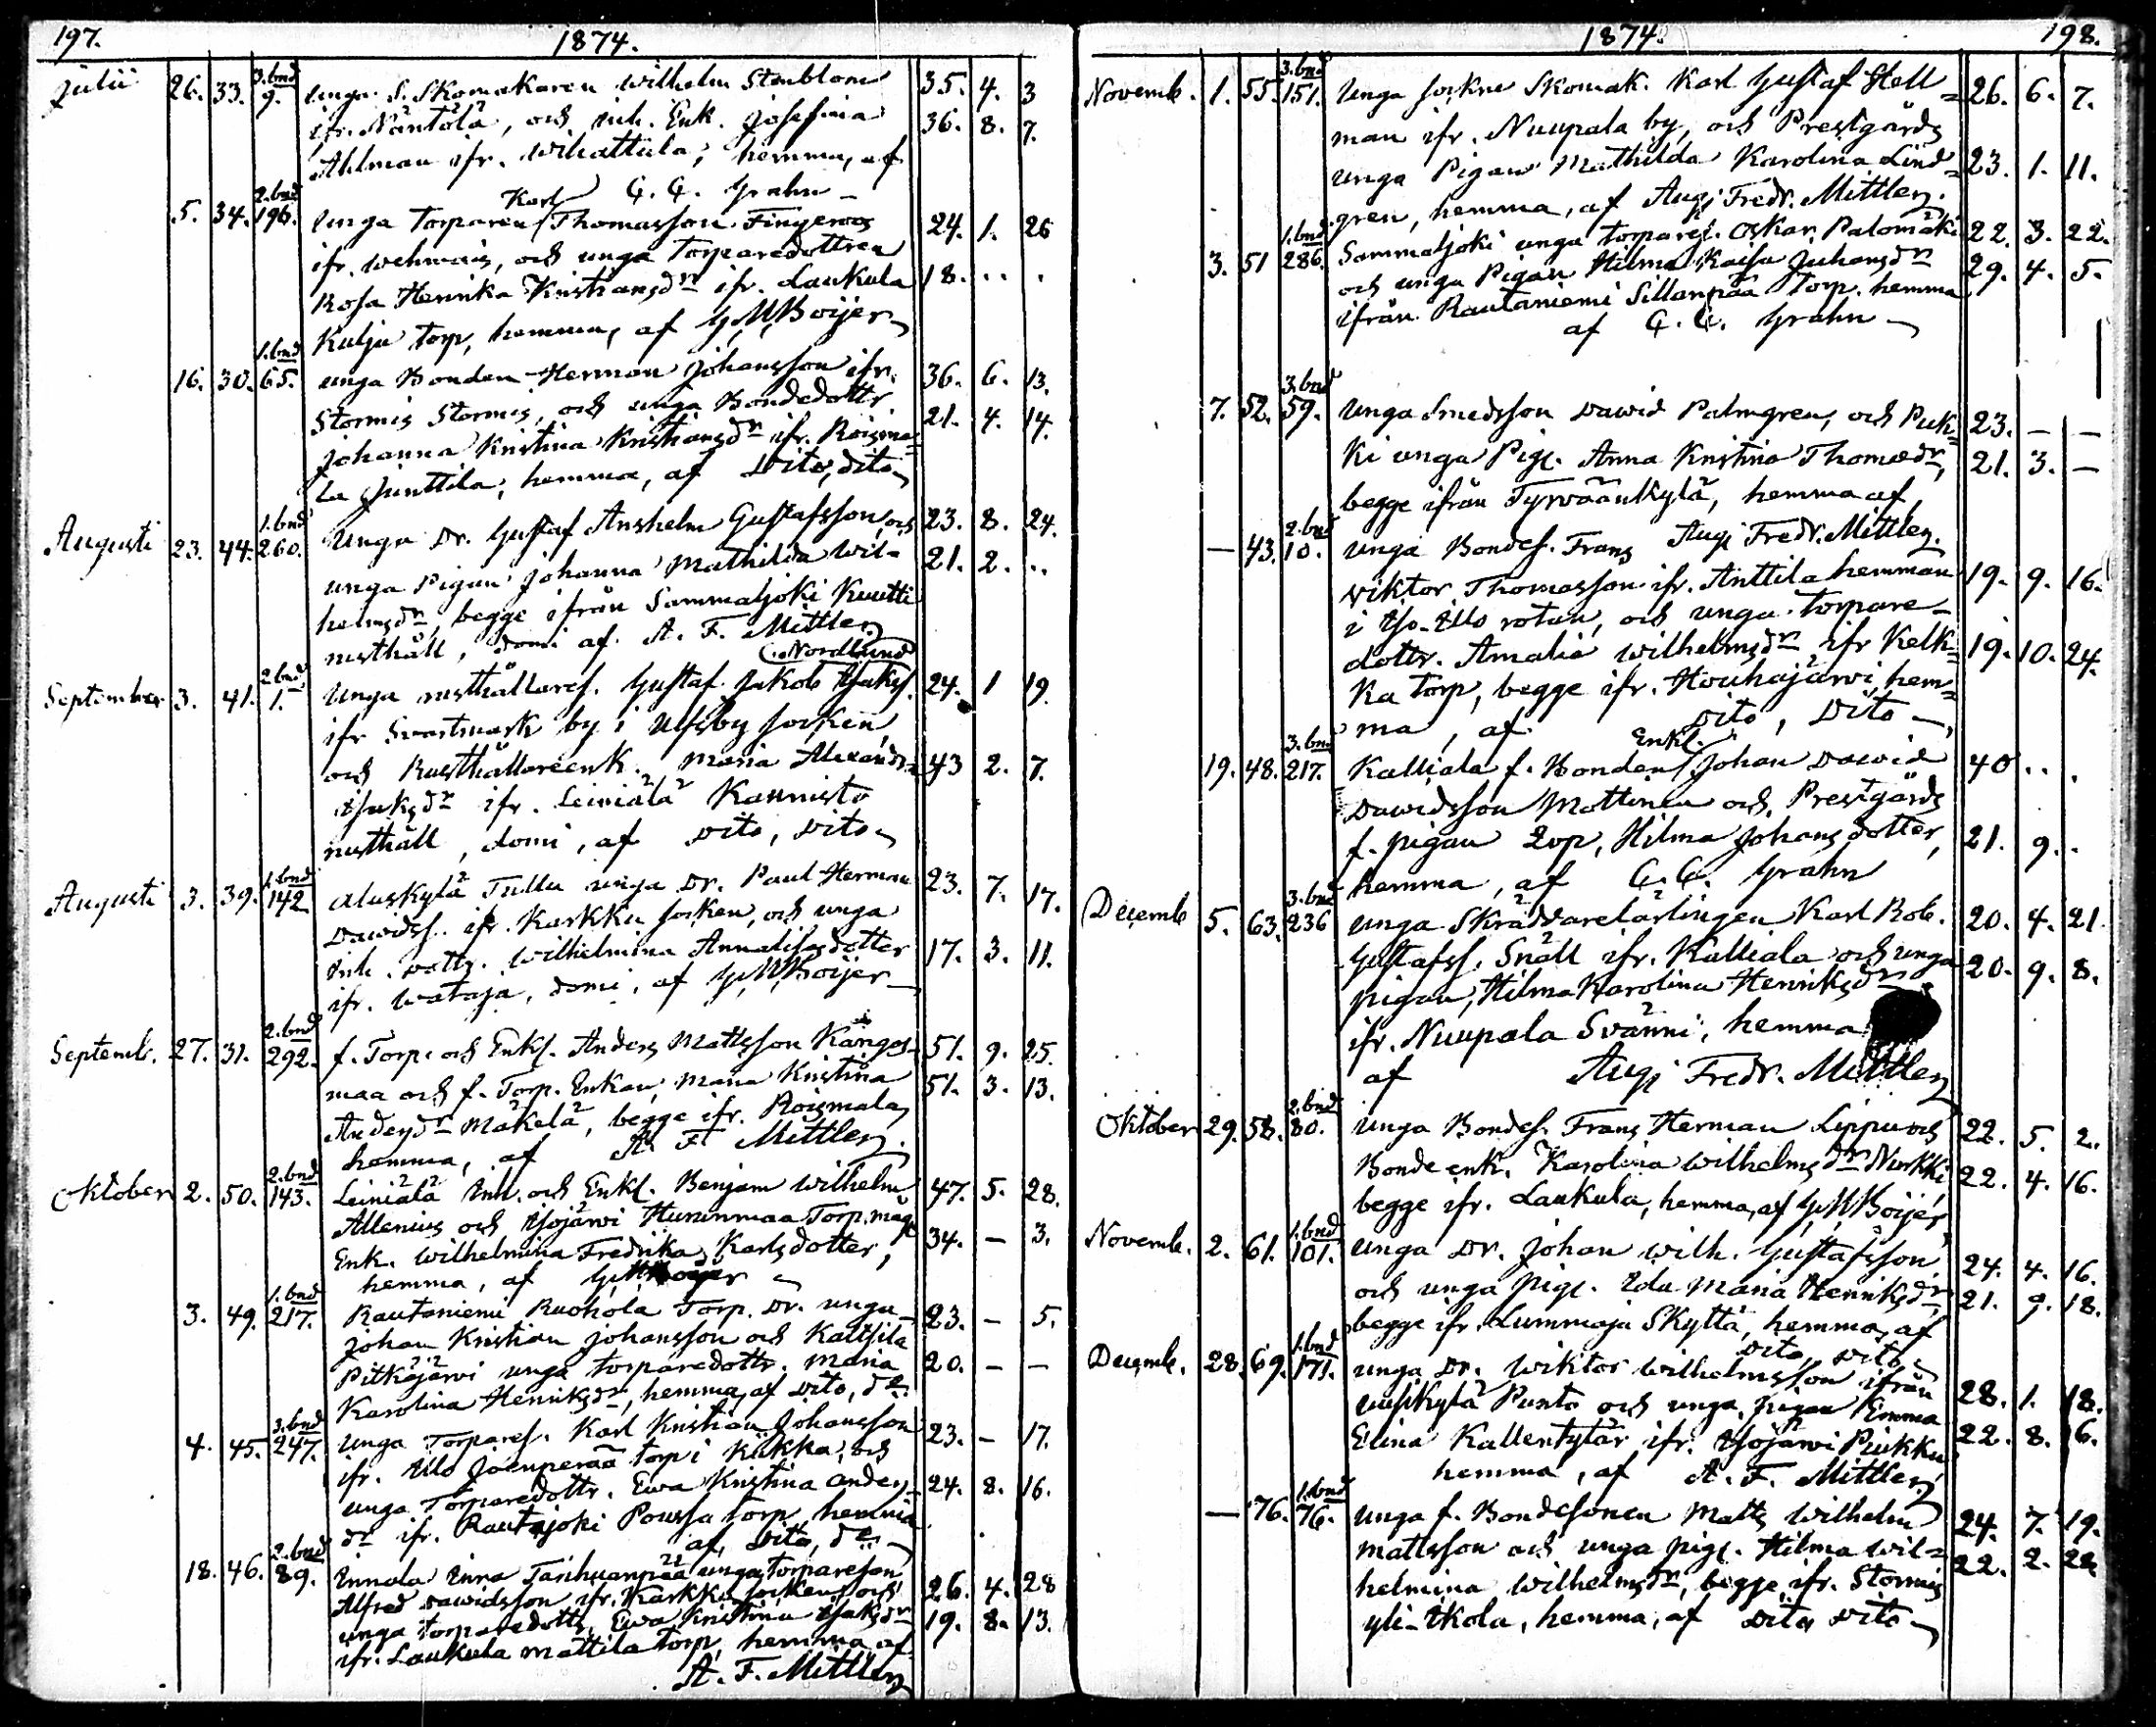 197. 1874.
Julii 26. 33. 3. bnd 9. unga S. Skomakaren Wilhelm Stenblom 35. 4. 3
ifr. Näntölä, och inh. Enk. Josefina 36. 8. 7.
Ahlman ifr. Wihattula, hemma, af
Karl C. C. Grahn
5. 34. 2. bnd 196. unga Torparen Thomasson Fingeroos 24. 1. 26
ifr. Wehmais, och unga Torparedottren
Rosa Henrika Kristiansdr ifr. Laukula 18. . . .
Kulju torp, hemma, af G. M. Boijer
16. 30. 1. bnd 65. unga Bonden Herman Johansson ifr. 36. 6. 13.
Stormis Stormis, och unga Bondedottr 21. 4. 14.
Johanna Kristina Kristiansdr ifr. Roisma=
la Junttila, hemma, af Dito, dito
Augusti 23. 44. 1. bnd 260. Unga Dr. Gustaf Anshelm Gustafsson, och 23. 8. 24.
unga Pigan Johanna Mathilda Wil= 21. 2. ..
helmsdr, begge ifrån Sammaljoki Kuutti
rusthåll, domi af A. F. Mittler
(Nordlund
September 3. 41. 2 bnd 1. Unga rusthållares. Gustaf Jakob Isaks. 24. 1 19.
ifr Svartmark by i Ulfsby socken,
och Rusthållareenk. Maria Alexandr= 43 2. 7.
Isaksdr ifr. Leiniälä Kaunisto
rusthåll, domi, af Dito, Dito
Augusti 3. 39. 1. bnd 142 Aluskylä Tullu unga Dr. Paul Herman 23. 7. 17.
Dawidss. ifr. Karkku socken, och unga
Inh. dottr. Wilhelmina Annalisasdotter 17. 3. 11.
ifr. Wataja, domi, af G. M. Boijer
Septemb. 27. 31. 2. bnd 292. f. Torp. och Enkl. Anders Mattsson Kanges= 51. 9. 25.
maa och f. Torp. Enkan, Maria Kristina 51. 3. 13.
Andersdr Mäkelä, begge ifr. Roismala,
hemma, af A. F. Mittler.
Oktober 2. 50. 2. bnd 143. Leiniälä Inh. och Enkl. Benjam Wilhelm 47. 5. 28.
Allenius och Isojärvi Torp. mag
Enk. Wilhelmina Fredrika Karlsdotter, 34. — 3.
hemma, af G. M. Boijer
3. 49. 1. bnd 217. Rautaniemi Ruohola Torp. Dr. unga 23. — 5.
Johan Kristian Johansson och Kaltsila
Pitkäjärvi unga torparedottr. Maria 20. — —
Karolina Henriksdr, hemma, af Dito, do
4. 45. 3. bnd 247. Unga Torpares. Karl Kristian Johansson 23. — 17.
ifr. Illo Joenperää torp i Kiikka, och
unga Torparedottr. Ewa Kristina Anders= 24. 8. 16.
dr ifr. Rautajoki Poussa torp, hemma
af, Dito, do
18. 46. 2. bnd 89. Innala Unga torpareson
Alfred Dawidsson ifr. Karkku socken, och 26. 4. 28
unga torparedottr, Ewa Kristina Isaksdr 19. 8. 13.
ifr. Laukula Mattila torp, hemma, af
A. F. Mittler
1874. 198.
Novemb. 1. 55. 3. bnd 151. Unga sockne Skomak. Karl Gustaf Hell= 26. 6. 7.
man ifr. Nuupala by, och Prestgårds
unga Pigan Mathilda Karolina Lind= 23. 1. 11.
gren, hemma, af Aug. Fredr. Mittler.
3. 51 1. bnd 286. Sammaljoki unga torpares. Oskar Palomäki 22. 3. 22.
och unga Pigan Hilma Kaisa Juhansdr 29. 4. 5.
ifrån Rautaniemi Sillanpää torp. hemma
af C. C. Grahn
7. 52. 3. bnd 59. Unga Smedsson Dawid Palmgren, och Puk= 23. — —
ki unga Pig. Anna Kristina Thomasdr, 21. 3. —
begge ifrån Tyrväänkylä, hemma af
Aug. Fredr. Mittler.
— 43. 2. bnd 10. Unga Bondes. Frans
Viktor Thomasson ifr. Anttila hemman 19. 9. 16.
i Iso-Illo rotan, och unga torpare=
dottr. Amalia Wilhelmsdr ifr Kelk= 19. 10. 24.
ka torp, begge ifr. Houhajärvi, hem=
ma, af Dito, Dito
19. 48. 3. bnd 217. Kalliala f. Bonden Enkl. Johan Dawid 40 . . .
Dawidsson Mattinen och Prestgårds
f. pigan Hilma Johansdotter, 21. 9. .
hemma, af C. C. Grahn
Decemb 5. 63. 3. bnd 236 Unga Skräddarelärlingen Karl Rob. 20. 4. 21.
Gustafss. Snäll ifr. Kalliala och unga 20. 9. 8.
pigan, Hilma Karolina Henriksdr
ifr. Nuupala Svänni, hemma
af Aug. Fredr. Mittler
Oktober 29. 58. 2. bnd 80. Unga Bondes. Frans Herman Lippu och 22. 5. 2.
Bonde enk. Karolina Wilhelmsdr Nurkki 22. 4. 16.
begge ifr. Laukula, hemma, af G. M. Boijer
Novemb. 2. 61. 1. bnd 101. Unga Dr. Johan Wilh. Gustafsson 24. 4. 16.
och unga pig. Ida Maria Henriksdr 21. 9. 18.
begge ifr. Lummaja Skyttä, hemma, af
Dito, Dito
Decemb. 28. 69. 1. bnd 171. Unga Dr. Wiktor Wilhelmsson ifrån 28. 1. 18.
Uusikylä Punto och unga pigan Emma
Elina Kallentytär ifr. Isojärvi Piukku 22. 8. 6.
hemma, af A. F. Mittler
— 76. 1. bnd 76. Unga f. Bondesonen Matts Wilhelm 24. 7. 19.
Mattsson och unga pig. Hilma Wil= 22. 2. 22
helmina Wilhelmsdr, begge ifr. Stormis
yli-Ikola, hemma, af Dito Dito